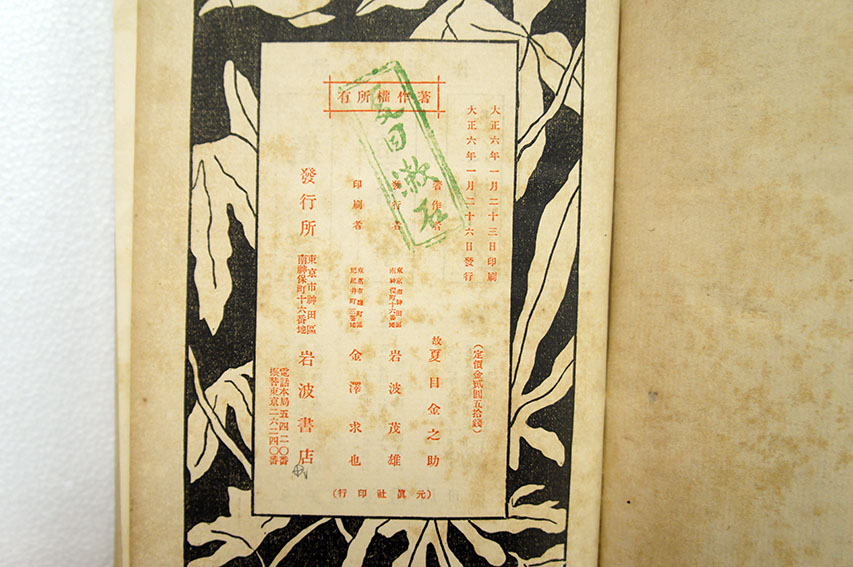 著作權所有
夏目漱石
大正六年一月二十三日印刷
大正六年一月二十六日發行
(定價金貳圓五拾錢)
著作者 故 夏目金之助
發行者 東京市神田區南神保町十六番地 岩波茂雄
印刷者 金澤求也
發行所 東京市神田區南神保町十六番地 岩波書店
電話本局五四二〇番
振替東京二六二四〇番
(元眞社印行)